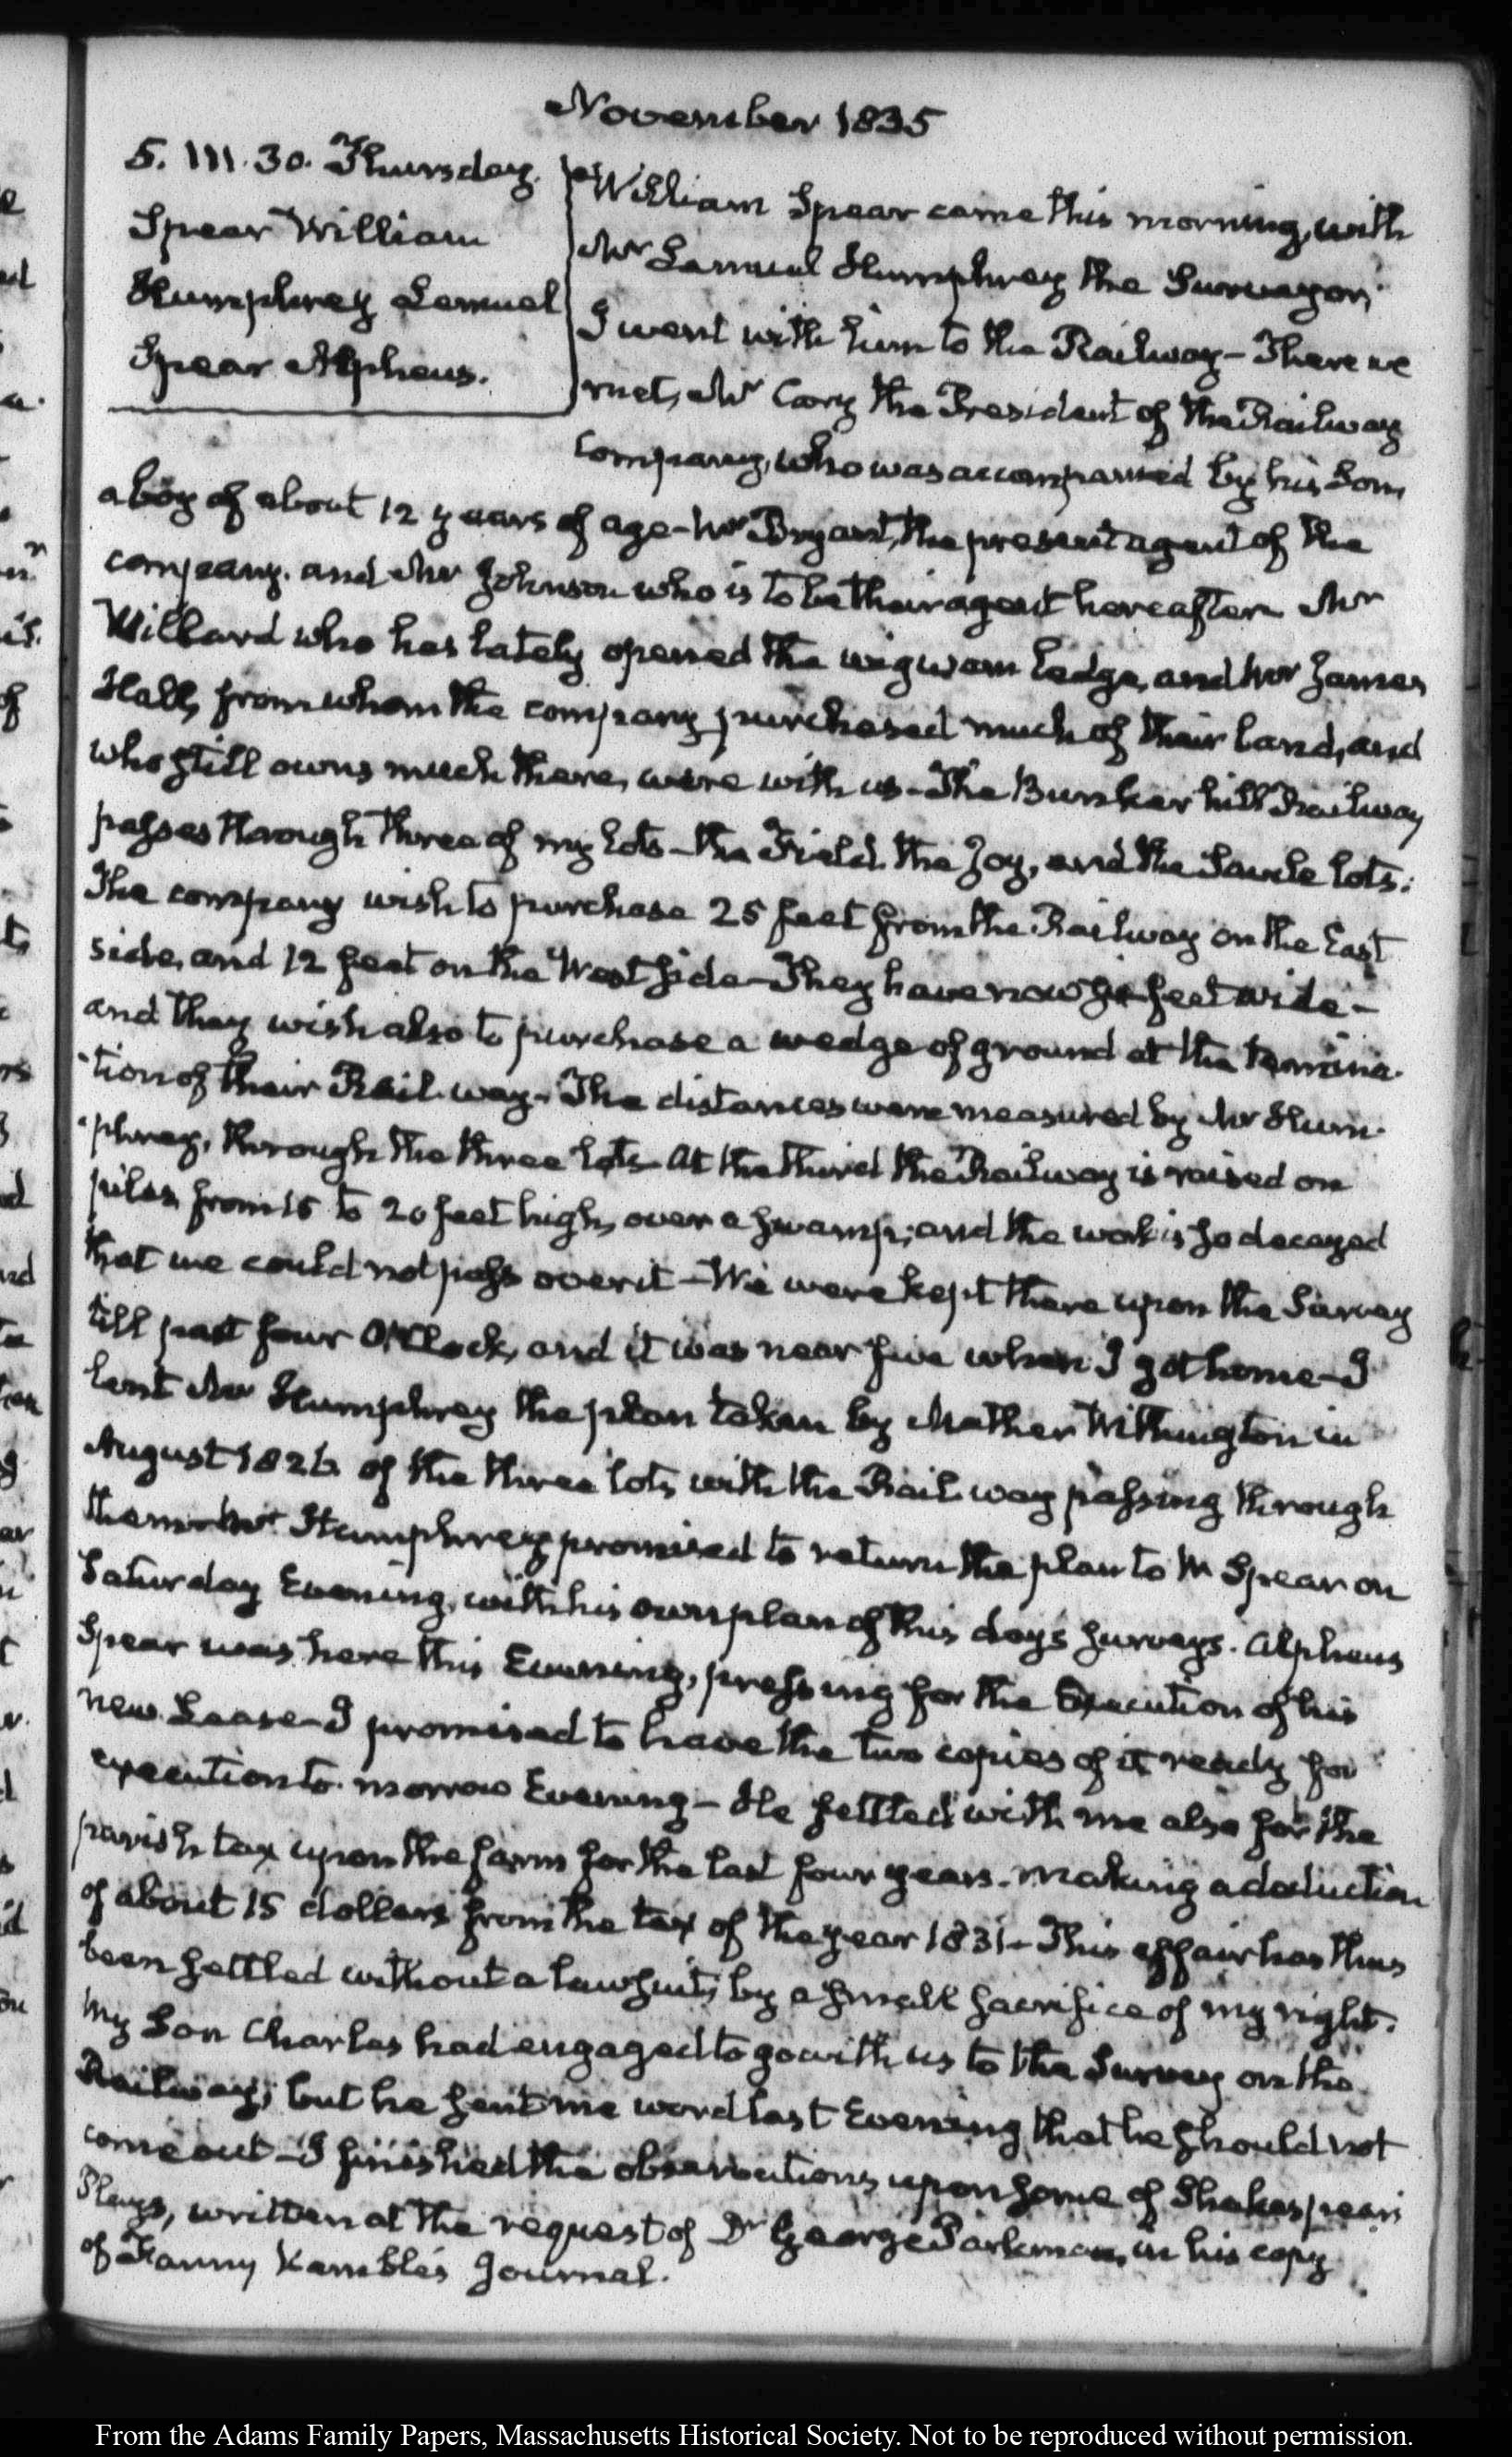 November 1835
5. III. 30. Thursday.
Spear William
Humphrey Lemuel
Spear Alpheus.
William Spear came this morning, with
Mr Lemuel Humphrey the Surveyor,
I went with him to the Railway – There we
met, Mr Cary the President of the Railway
company, who was accompanied by his Son,
a boy of about 12 years of age – Mr Bryant, the present agent of the
company. and Mr Johnson who is to be their agent hereafter Mr
Willard who has lately opened the wigwam Ledge, and Mr James
Hall, from whom the company purchased much of their land, and
who still owns much there, were with us – The Bunker hill Railway
passes through three of my lots – the Field. the Joy, and the Savile lots:
The company wish to purchase 25 feet from the Railway on the East
side, and 12 feet on the West side – They have now feet wide –
and they wish also to purchase a wedge of ground at the termina-
tion of their Rail-way – The distances were measured by Mr Hum-
phrey, through the three lots – At the third the Railway is raised on
piles from 15 to 20 feet high, over a swamp; and the work is so decayed
that we could not pass over it – We were kept there upon the Survey
till past four O'Clock, and it was near five when I got home – I
lent Mr Humphrey the plan taken by Mather Withington in
August 1826 of the three lots with the Rail-way passing through
them – Mr Humphrey promised to return the plan to W Spear on
Saturday Evening, with his own plan of this days surveys. Alpheus
Spear was here this Evening, pressing for the Execution of his
new Lease – I promised to have the two copies of it ready for
execution to-morrow Evening – He settled with me also for the
parish tax upon the farm for the last four years. making a deduction
of about 15 dollars from the tax of the year 1831 – This affair has thus
been settled without a lawsuit, by a small sacrifice of my right.
My Son Charles had engaged to go with us to the Survey on the
Railway; but he sent me word last Evening that he should not
come out – I finished the observations upon some of Shakespear's
Plays, written at the request of Dr George Parkman, in his copy
of Fanny Kemble's Journal.
From the Adams Family Papers, Massachusetts Historical Society. Not to be reproduced without permission.